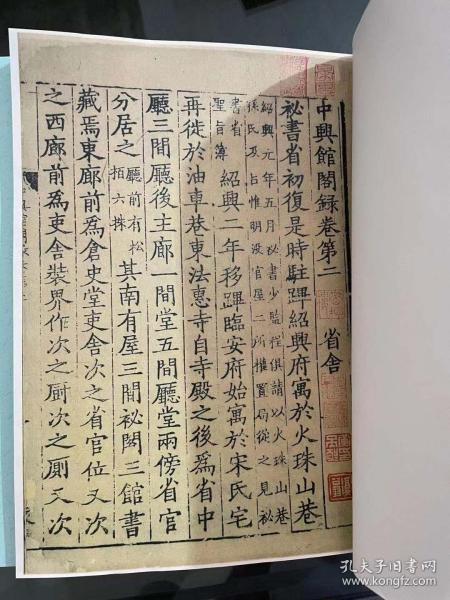 中興館閣録卷第二 省舍
祕書省初復是時駐蹕紹興府寓於火珠山巷
紹興元年五月祕書少監程俱請以火珠山巷
孫氏及呂惟明没官屋二所權置局從之見祕
書省
聖旨簿
紹興二年移蹕臨安府始寓於宋氏宅
再徙於油車巷東法惠寺自寺殿之後爲省中
廳三間廳後主廊一間堂五間廳堂兩傍省官
分居之
廳前有松
栢六株
其南有屋三間祕閣三館書
藏焉東廊前爲倉史堂吏舍次之省官位又次
之西廊前爲吏舍裝界作次之厨次之厠又次
孔夫子旧书网
www.kongfz.com